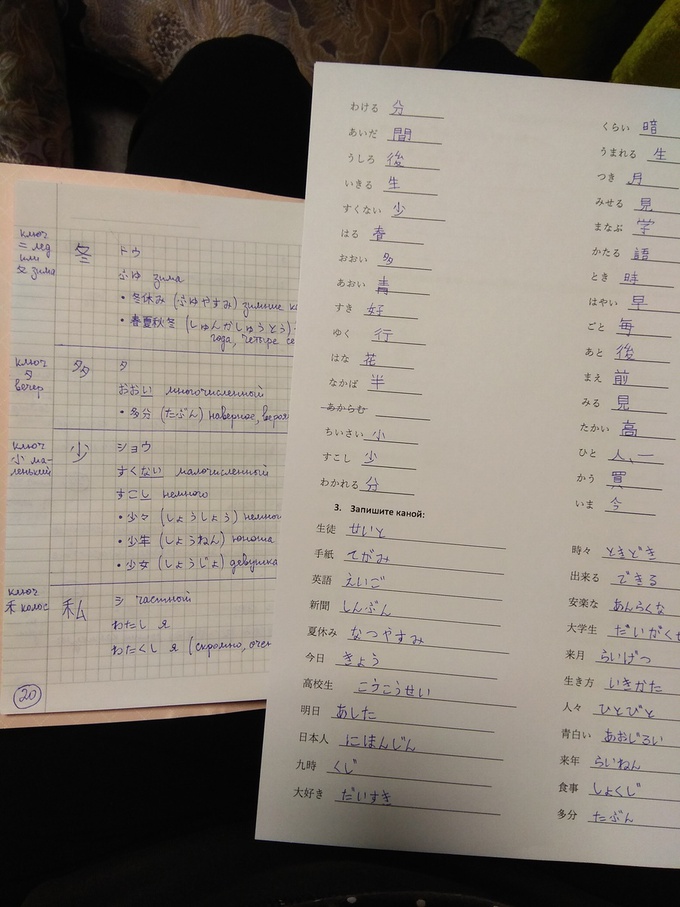 ключ
= лед
или
夂 зима
冬 トウ
ふゆ зима
• 冬休み (ふゆやすみ) зимние
• 春夏秋冬 (しゅんかしゅうとう)
года, четыре
ключ
夕
вечер
多 タ
おおい многочисленный
• 多分 (たぶん) наверное,
ключ
小 ма-
ленький
少 ショウ
すくない малочисленный
すこし немного
• 少々 (しょうしょう)
• 少年 (しょうねん) юноша
• 少女 (しょうじょ) девушка
ключ
禾 колос
私 シ частный
わたし я
わたくし я (скромно,
20
わける 分
あいだ 間
うしろ 後
いきる 生
すくない 少
はる 春
おおい 多
あおい 青
すき 好
ゆく 行
はな 花
なかば 半
あからむ
ちいさい 小
すこし 少
わかれる 分
くらい 暗
うまれる 生
つき 月
みせる 見
まなぶ 学
かたる 語
とき 時
はやい 早
ごと 毎
あと 後
まえ 前
みる 見
たかい 高
ひと 人、一
かう 買
いま 今
3. Запишите каной:
生徒 せいと
手紙 てがみ
英語 えいご
新聞 しんぶん
夏休み なつやすみ
今日 きょう
高校生 こうこうせい
明日 あした
日本人 にほんじん
九時 くじ
大好き だいすき
時々 ときどき
出来る できる
安楽な あんらくな
大学生 だいがく
来月 らいげつ
生き方 いきかた
人々 ひとびと
青白い あおじろい
来年 らいねん
食事 しょくじ
多分 たぶん